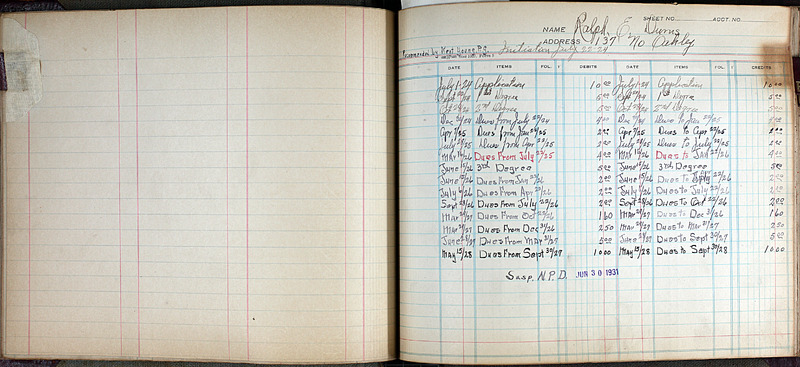 SHEET NO. ACCT. NO.
NAME Ralph E. Burns
ADDRESS 137 No Oakley
Recommended by West. Young. P.G. Initiation July 22-24
DATE ITEMS FOL. DEBITS DATE ITEMS FOL. CREDITS
July 1-24 Application 10 00 July 1-24 Application 10 00
1st Degree 5 00 1st Degree 5 00
2nd Degree 5 00 2nd Degree 5 00
Dec Dues from July 4 00 Dec Dues to Jan
Apr 7/25 Dues from Jan 2 00 Apr 7/25 Dues to Apr 2 00
July Dues from Apr 2 00 July Dues to July
Mar Dues From July 4 00 Mar Dues to Jan 4 00
June 3rd Degree 5 00 June 3rd Degree 5 00
June Dues From Jan 2 00 June Dues To Apr 2 00
July 6/26 Dues From Apr 2 00 July 6/26 Dues to July 2 00
Sept 28/26 Dues From July 2 00 Sept 28/26 Dues to Oct 2 00
Mar Dues From Oct 1 60 Mar Dues To Dec 31/26 1 60
Mar Dues From Dec 31/26 2 50 Mar Dues to Mar 31/27 2 50
June Dues From Mar 31/27 5 00 June Dues to Sept 30/27 5 00
May 15/28 Dues From Sept 30/27 10 00 May 15/28 Dues to Sept 30/28 10 00
Susp. N.P.D. JUN 30 1931